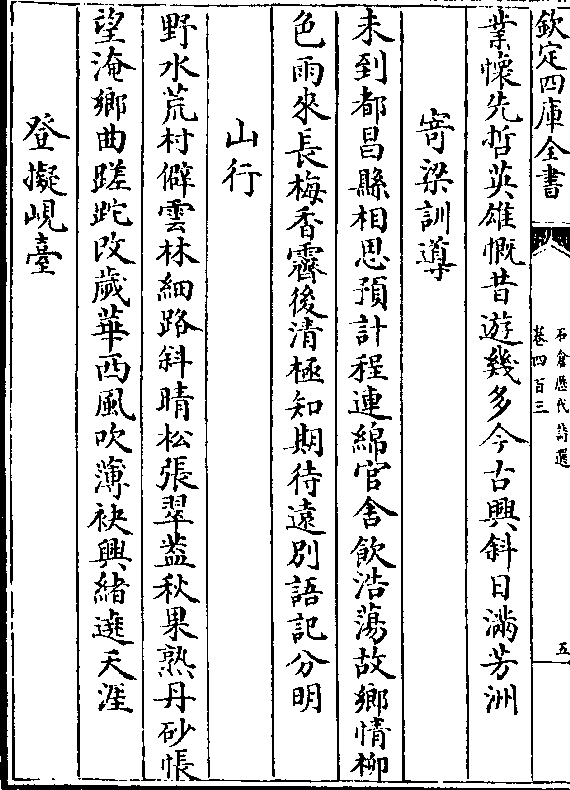 欽定四庫全書
石倉歷代詩選
卷四百三
五
業懷先哲英雄慨昔遊幾多今古興斜日滿芳洲
寄梁訓導
未到都昌縣相思預計程連綿官舍飲浩蕩故鄉情柳
色雨來長梅香霽後清極知期待遠別語記分明
山行
野水荒村僻雲林細路斜晴松張翠葢秋果熟丹砂悵
望淹鄉曲蹉跎改歲華西風吹薄袂興緒遶天涯
登擬峴臺